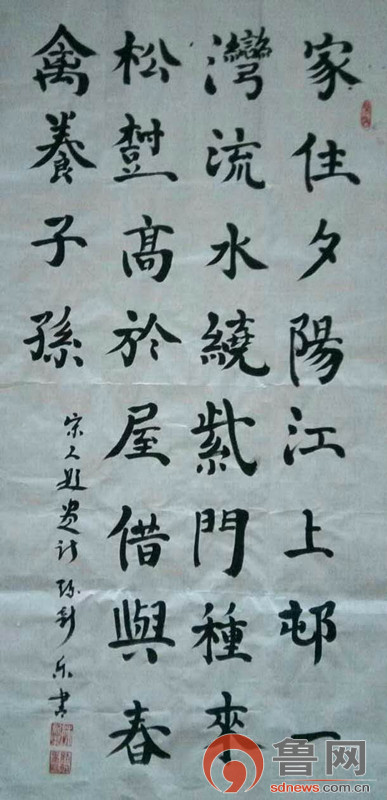 家住夕陽江上邨一
灣流水繞紫門種來
松樹高於屋借與春
禽養子孫
宋人 书
鲁网
sdnews.com.cn